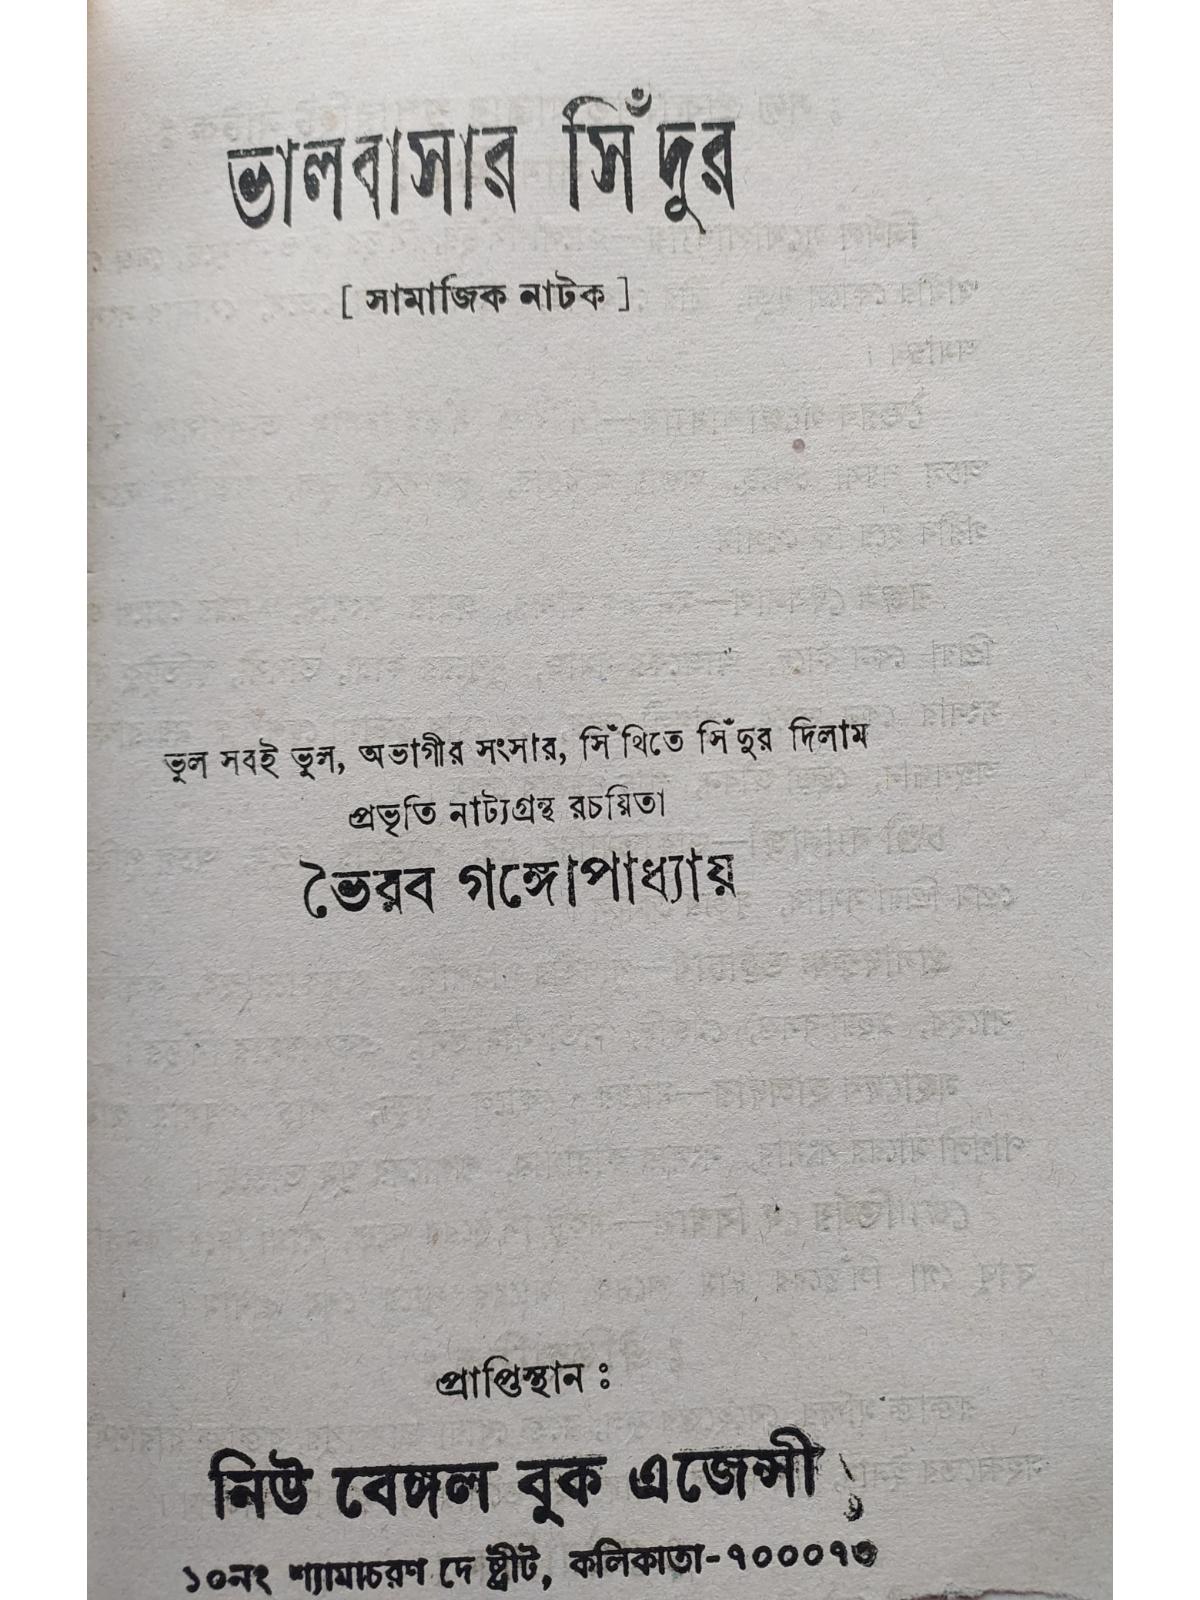 ভালবাসার সিঁদুর
[ সামাজিক নাটক ]
ভুল সবই ভুল, অভাগীর সংসার, সিঁথিতে সিঁদুর দিলাম
প্রভৃতি নাট্যগ্রন্থ রচয়িতা
ভৈরব গঙ্গোপাধ্যায়
প্রাপ্তিস্থান :
নিউ বেঙ্গল বুক এজেন্সী
১০নং শ্যামাচরণ দে ষ্ট্রীট, কলিকাতা-৭০০০৭৩